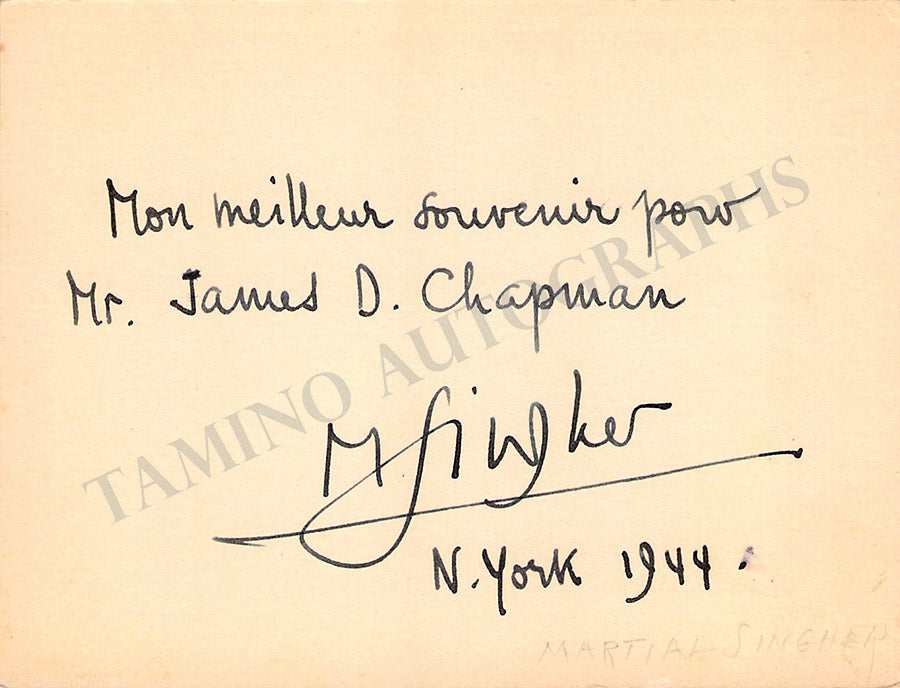 Mon meilleur souvenir pour
Mr. James D. Chapman
M Singher
N. York 1944.
MARTIAL SINGHER
TAMINO AUTOGRAPHS